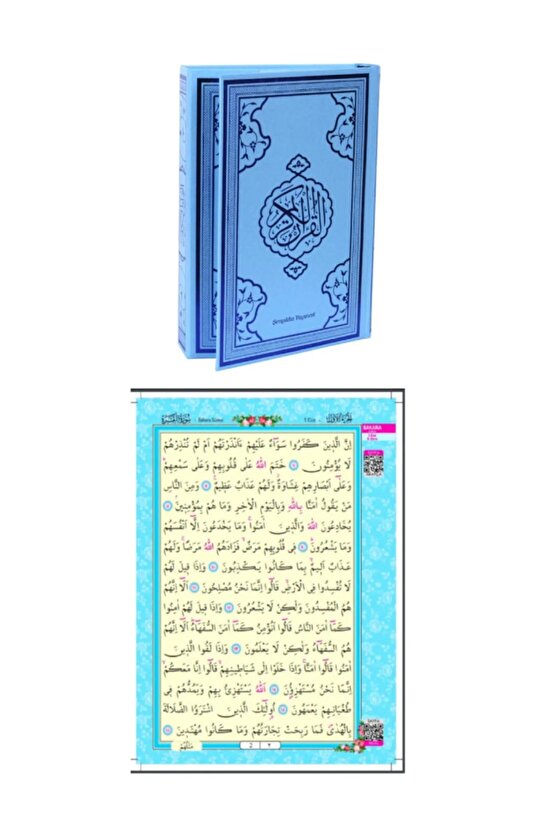 القرآن الكريم
Yayınevi
سُورَةُ الْبَقَرَةِ
Bakara Suresi
1.Cüz
BAKARA
اِنَّ الَّذٖينَ كَفَرُوا سَوَٓاءٌ عَلَيْهِمْ ءَاَنْذَرْتَهُمْ اَمْ لَمْ تُنْذِرْهُمْ
لَا يُؤْمِنُونَ ﴿٦﴾ خَتَمَ اللّٰهُ عَلٰى قُلُوبِهِمْ وَعَلٰى سَمْعِهِمْ
وَعَلٰٓى اَبْصَارِهِمْ غِشَاوَةٌ وَلَهُمْ عَذَابٌ عَظٖيمٌ ﴿٧﴾ وَمِنَ النَّاسِ
مَنْ يَقُولُ اٰمَنَّا بِاللّٰهِ وَبِالْيَوْمِ الْاٰخِرِ وَمَا هُمْ بِمُؤْمِنٖينَ ﴿٨﴾
يُخَادِعُونَ اللّٰهَ وَالَّذٖينَ اٰمَنُوا وَمَا يَخْدَعُونَ اِلَّٓا اَنْفُسَهُمْ
وَمَا يَشْعُرُونَ ﴿٩﴾ فٖي قُلُوبِهِمْ مَرَضٌ فَزَادَهُمُ اللّٰهُ مَرَضًا وَلَهُمْ
عَذَابٌ اَلٖيمٌ بِمَا كَانُوا يَكْذِبُونَ ﴿١٠﴾ وَاِذَا قٖيلَ لَهُمْ
لَا تُفْسِدُوا فِي الْاَرْضِ قَالُٓوا اِنَّمَا نَحْنُ مُصْلِحُونَ ﴿١١﴾ اَلَٓا اِنَّهُمْ
هُمُ الْمُفْسِدُونَ وَلٰكِنْ لَا يَشْعُرُونَ ﴿١٢﴾ وَاِذَا قٖيلَ لَهُمْ اٰمِنُوا
كَمَٓا اٰمَنَ النَّاسُ قَالُٓوا اَنُؤْمِنُ كَمَٓا اٰمَنَ السُّفَهَٓاءُ اَلَٓا اِنَّهُمْ
هُمُ السُّفَهَٓاءُ وَلٰكِنْ لَا يَعْلَمُونَ ﴿١٣﴾ وَاِذَا لَقُوا الَّذٖينَ
اٰمَنُوا قَالُٓوا اٰمَنَّا وَاِذَا خَلَوْا اِلٰى شَيَاطٖينِهِمْ قَالُٓوا اِنَّا مَعَكُمْ
اِنَّمَا نَحْنُ مُسْتَهْزِؤُنَ ﴿١٤﴾ اَللّٰهُ يَسْتَهْزِئُ بِهِمْ وَيَمُدُّهُمْ فٖي
طُغْيَانِهِمْ يَعْمَهُونَ ﴿١٥﴾ اُو۬لٰٓئِكَ الَّذٖينَ اشْتَرَوُا الضَّلَالَةَ
بِالْهُدٰى فَمَا رَبِحَتْ تِجَارَتُهُمْ وَمَا كَانُوا مُهْتَدٖينَ ﴿١٦﴾
مَثَلُهُمْ
2 ٢